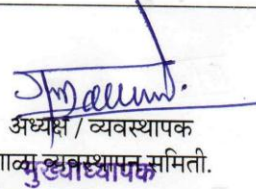 अध्यक्ष / व्यवस्थापक
व्यवस्थापन समिती.
मुख्याध्यापक